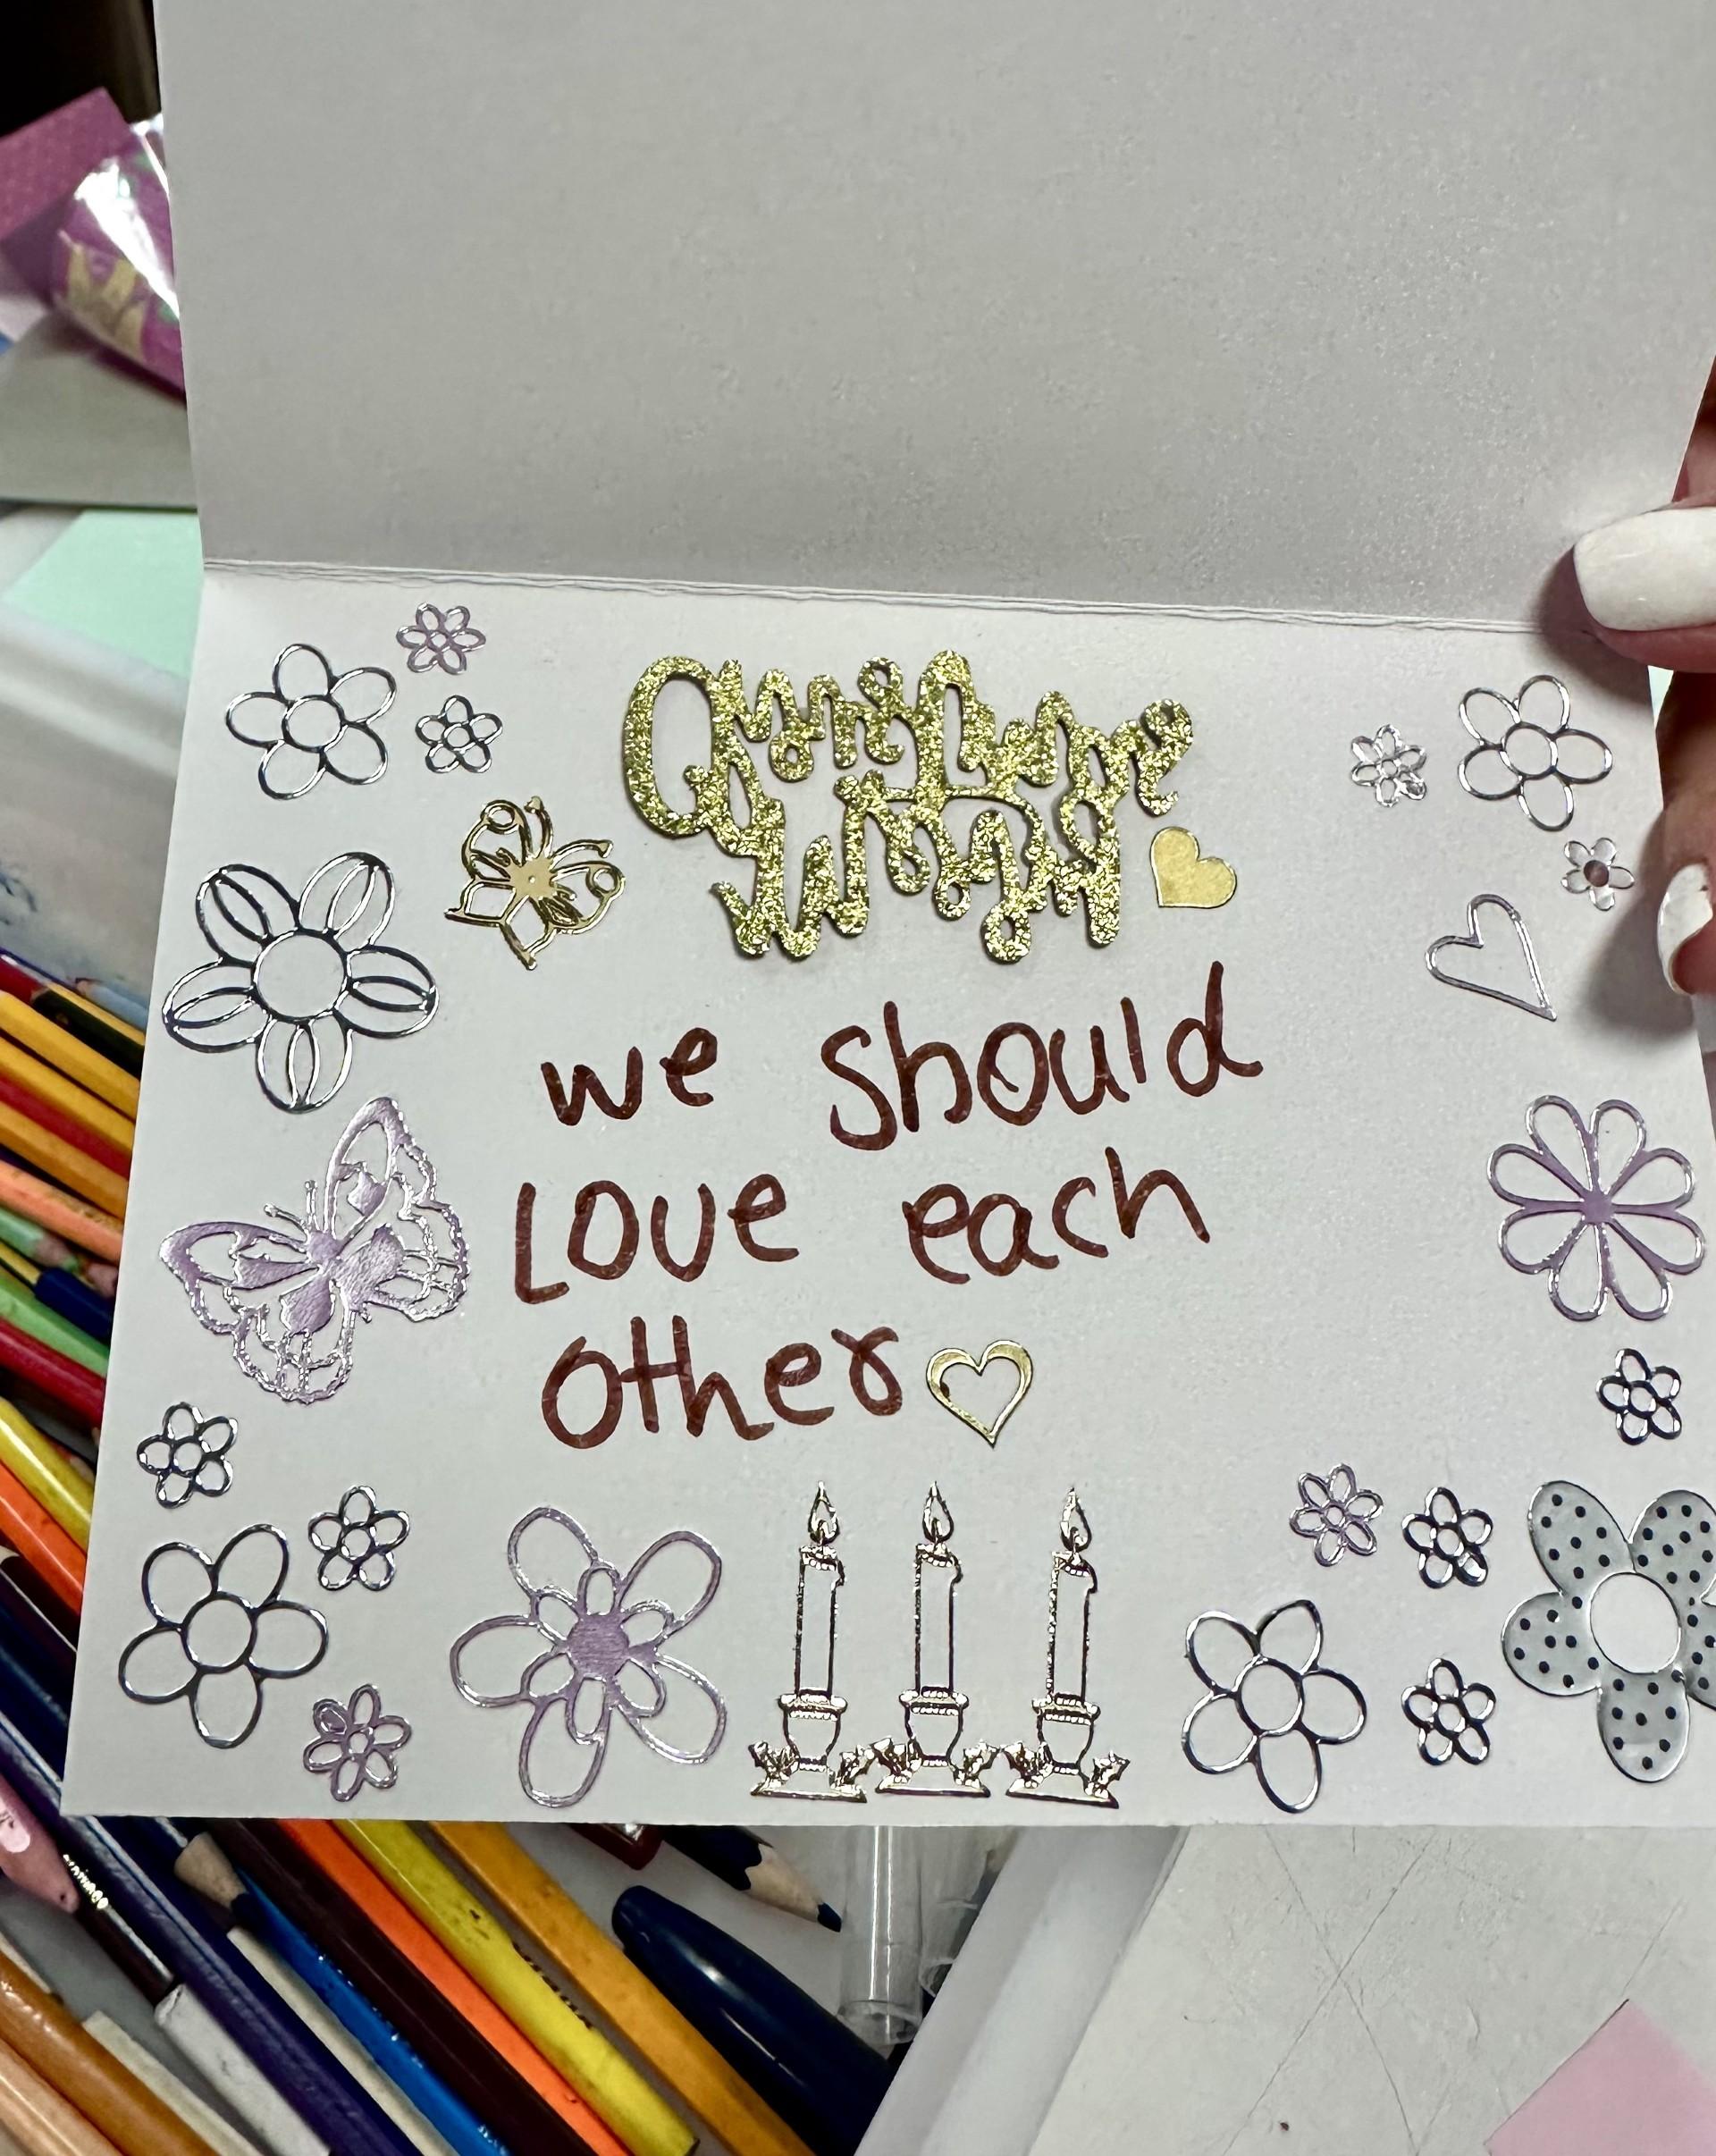 we should
Love each
other